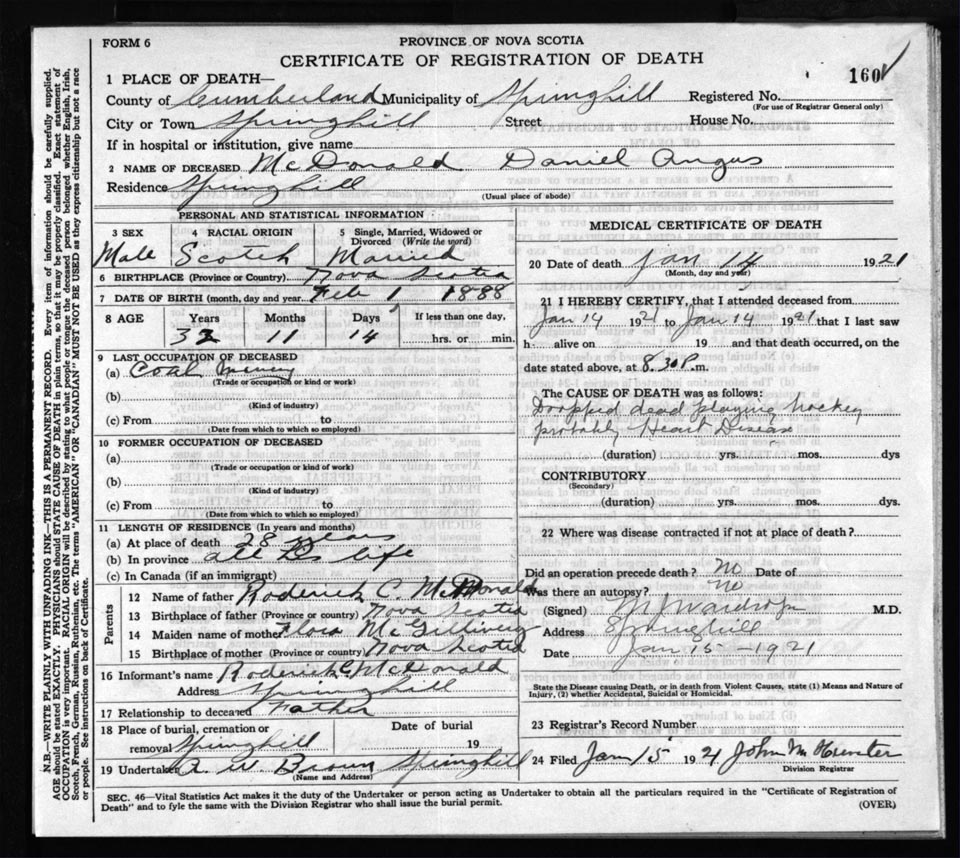 FORM 6
PROVINCE OF NOVA SCOTIA
CERTIFICATE OF REGISTRATION OF DEATH
160
1 PLACE OF DEATH—
County of Cumberland Municipality of Springhill Registered No.
(For use of Registrar General only)
City or Town Springhill Street House No.
If in hospital or institution, give name
2 NAME OF DECEASED McDonald Daniel Angus
Residence Springhill
(Usual place of abode)
PERSONAL AND STATISTICAL INFORMATION
3 SEX 4 RACIAL ORIGIN 5 Single, Married, Widowed or Divorced (Write the word)
Male Scotch Married
6 BIRTHPLACE (Province or Country) Nova Scotia
7 DATE OF BIRTH (month, day and year) Feb 1 1888
8 AGE Years Months Days If less than one day,
32 11 14 hrs. or min.
9 LAST OCCUPATION OF DECEASED
(a) Coal
(Trade or occupation or kind or work)
(b)
(Kind of industry)
(c) From to
(Date from which to which so employed)
10 FORMER OCCUPATION OF DECEASED
(a)
(Trade or occupation or kind of work)
(b)
(Kind of industry)
(c) From to
(Date from which to which so employed)
11 LENGTH OF RESIDENCE (In years and months)
(a) At place of death 28 years
(b) In province all his life
(c) In Canada (if an immigrant)
Parents
12 Name of father Roderick C. McDonald
13 Birthplace of father (Province or country) Nova Scotia
14 Maiden name of mother Flora McGillivery
15 Birthplace of mother (Province or country) Nova Scotia
16 Informant's name Roderick C McDonald
Address Springhill
17 Relationship to deceased Father
18 Place of burial, cremation or removal Springhill Date of burial 19
19 Undertaker A. W. Brown Springhill
(Name and Address)
MEDICAL CERTIFICATE OF DEATH
20 Date of death Jan 14 1921
(Month, day and year)
21 I HEREBY CERTIFY, that I attended deceased from
Jan 14 1921 to Jan 14 1921 that I last saw
h alive on 19 and that death occurred, on the
date stated above, at 8.30 P.m.
The CAUSE OF DEATH was as follows:
Dropped dead playing hockey
probably Heart Disease
(duration) yrs. mos. dys
CONTRIBUTORY
(Secondary)
(duration) yrs. mos. dys.
22 Where was disease contracted if not at place of death?
Did an operation precede death? No Date of
Was there an autopsy? No
(Signed) M.D.
Address Springhill
Date Jan 15 - 1921
State the Disease causing Death, or in death from Violent Causes, state (1) Means and Nature of
Injury, (2) whether Accidental, Suicidal or Homicidal.
23 Registrar's Record Number
24 Filed Jan 15 1921 John M
Division Registrar
SEC. 46—Vital Statistics Act makes it the duty of the Undertaker or person acting as Undertaker to obtain all the particulars required in the "Certificate of Registration of
Death" and to fyle the same with the Division Registrar who shall issue the burial permit.
(OVER)
N.B.—WRITE PLAINLY WITH UNFADING INK—THIS IS A PERMANENT RECORD. Every item of information should be carefully supplied.
AGE should be stated EXACTLY. PHYSICIANS should STATE CAUSE OF DEATH in plain terms, so that it may be properly classified. Exact statement of
OCCUPATION is very important. RACIAL ORIGIN will be described by stating to what people or tongue the deceased person belonged whether English, Irish,
Scotch, French, German, Russian, Ruthenian, etc. The terms "AMERICAN" OR "CANADIAN" MUST NOT BE USED as they express citizenship but not a race
or people. See instructions on back of Certificate.